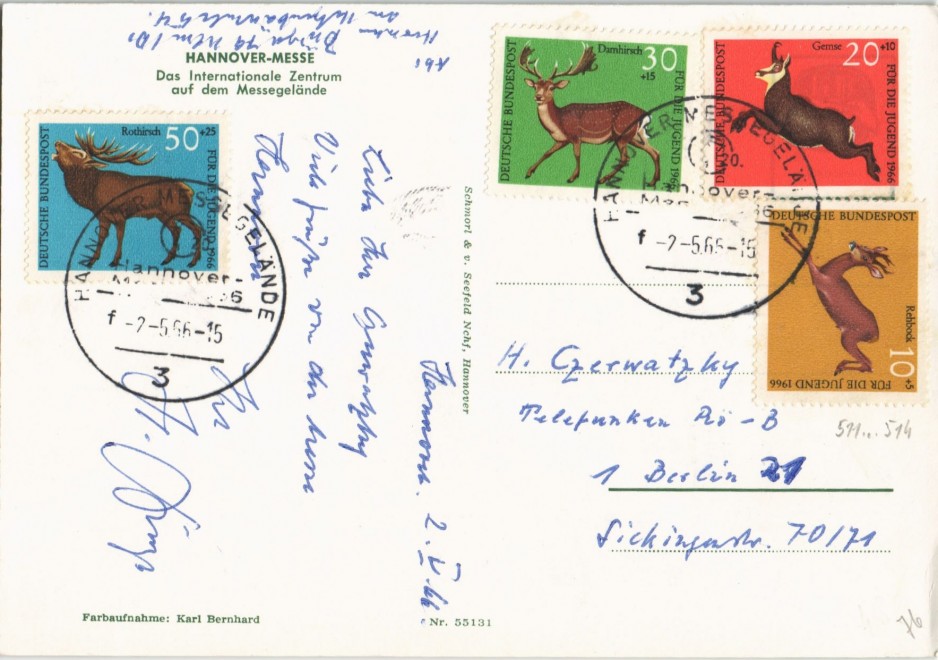 Abs.
HANNOVER-MESSE
Das Internationale Zentrum
auf dem Messegelände
Rothirsch
50 +25
DEUTSCHE BUNDESPOST
FÜR DIE JUGEND 1966
Damhirsch
30
+15
DEUTSCHE BUNDESPOST
FÜR DIE JUGEND 1966
Gemse
20 +10
DEUTSCHE BUNDESPOST
FÜR DIE JUGEND 1966
DEUTSCHE BUNDESPOST
Rehbock
10 +5
FÜR DIE JUGEND 1966
HANNOVER MESSEGELÄNDE
Hannover-
f -2-5.66-15
3
HANNOVER MESSEGELÄNDE
Hannover-
f -2-5.66-15
3
Hannover. 2.V.66.
Lieber Herr Czerwatzky
Viele Grüße von der Messe
Hannover
Ihr
Schmorl & v. Seefeld Nchf, Hannover
H. Czerwatzky
Telefunken Rö-B
1 Berlin 21
Sickingenstr. 70/71
511...514
Farbaufnahme: Karl Bernhard
Nr. 55131
76